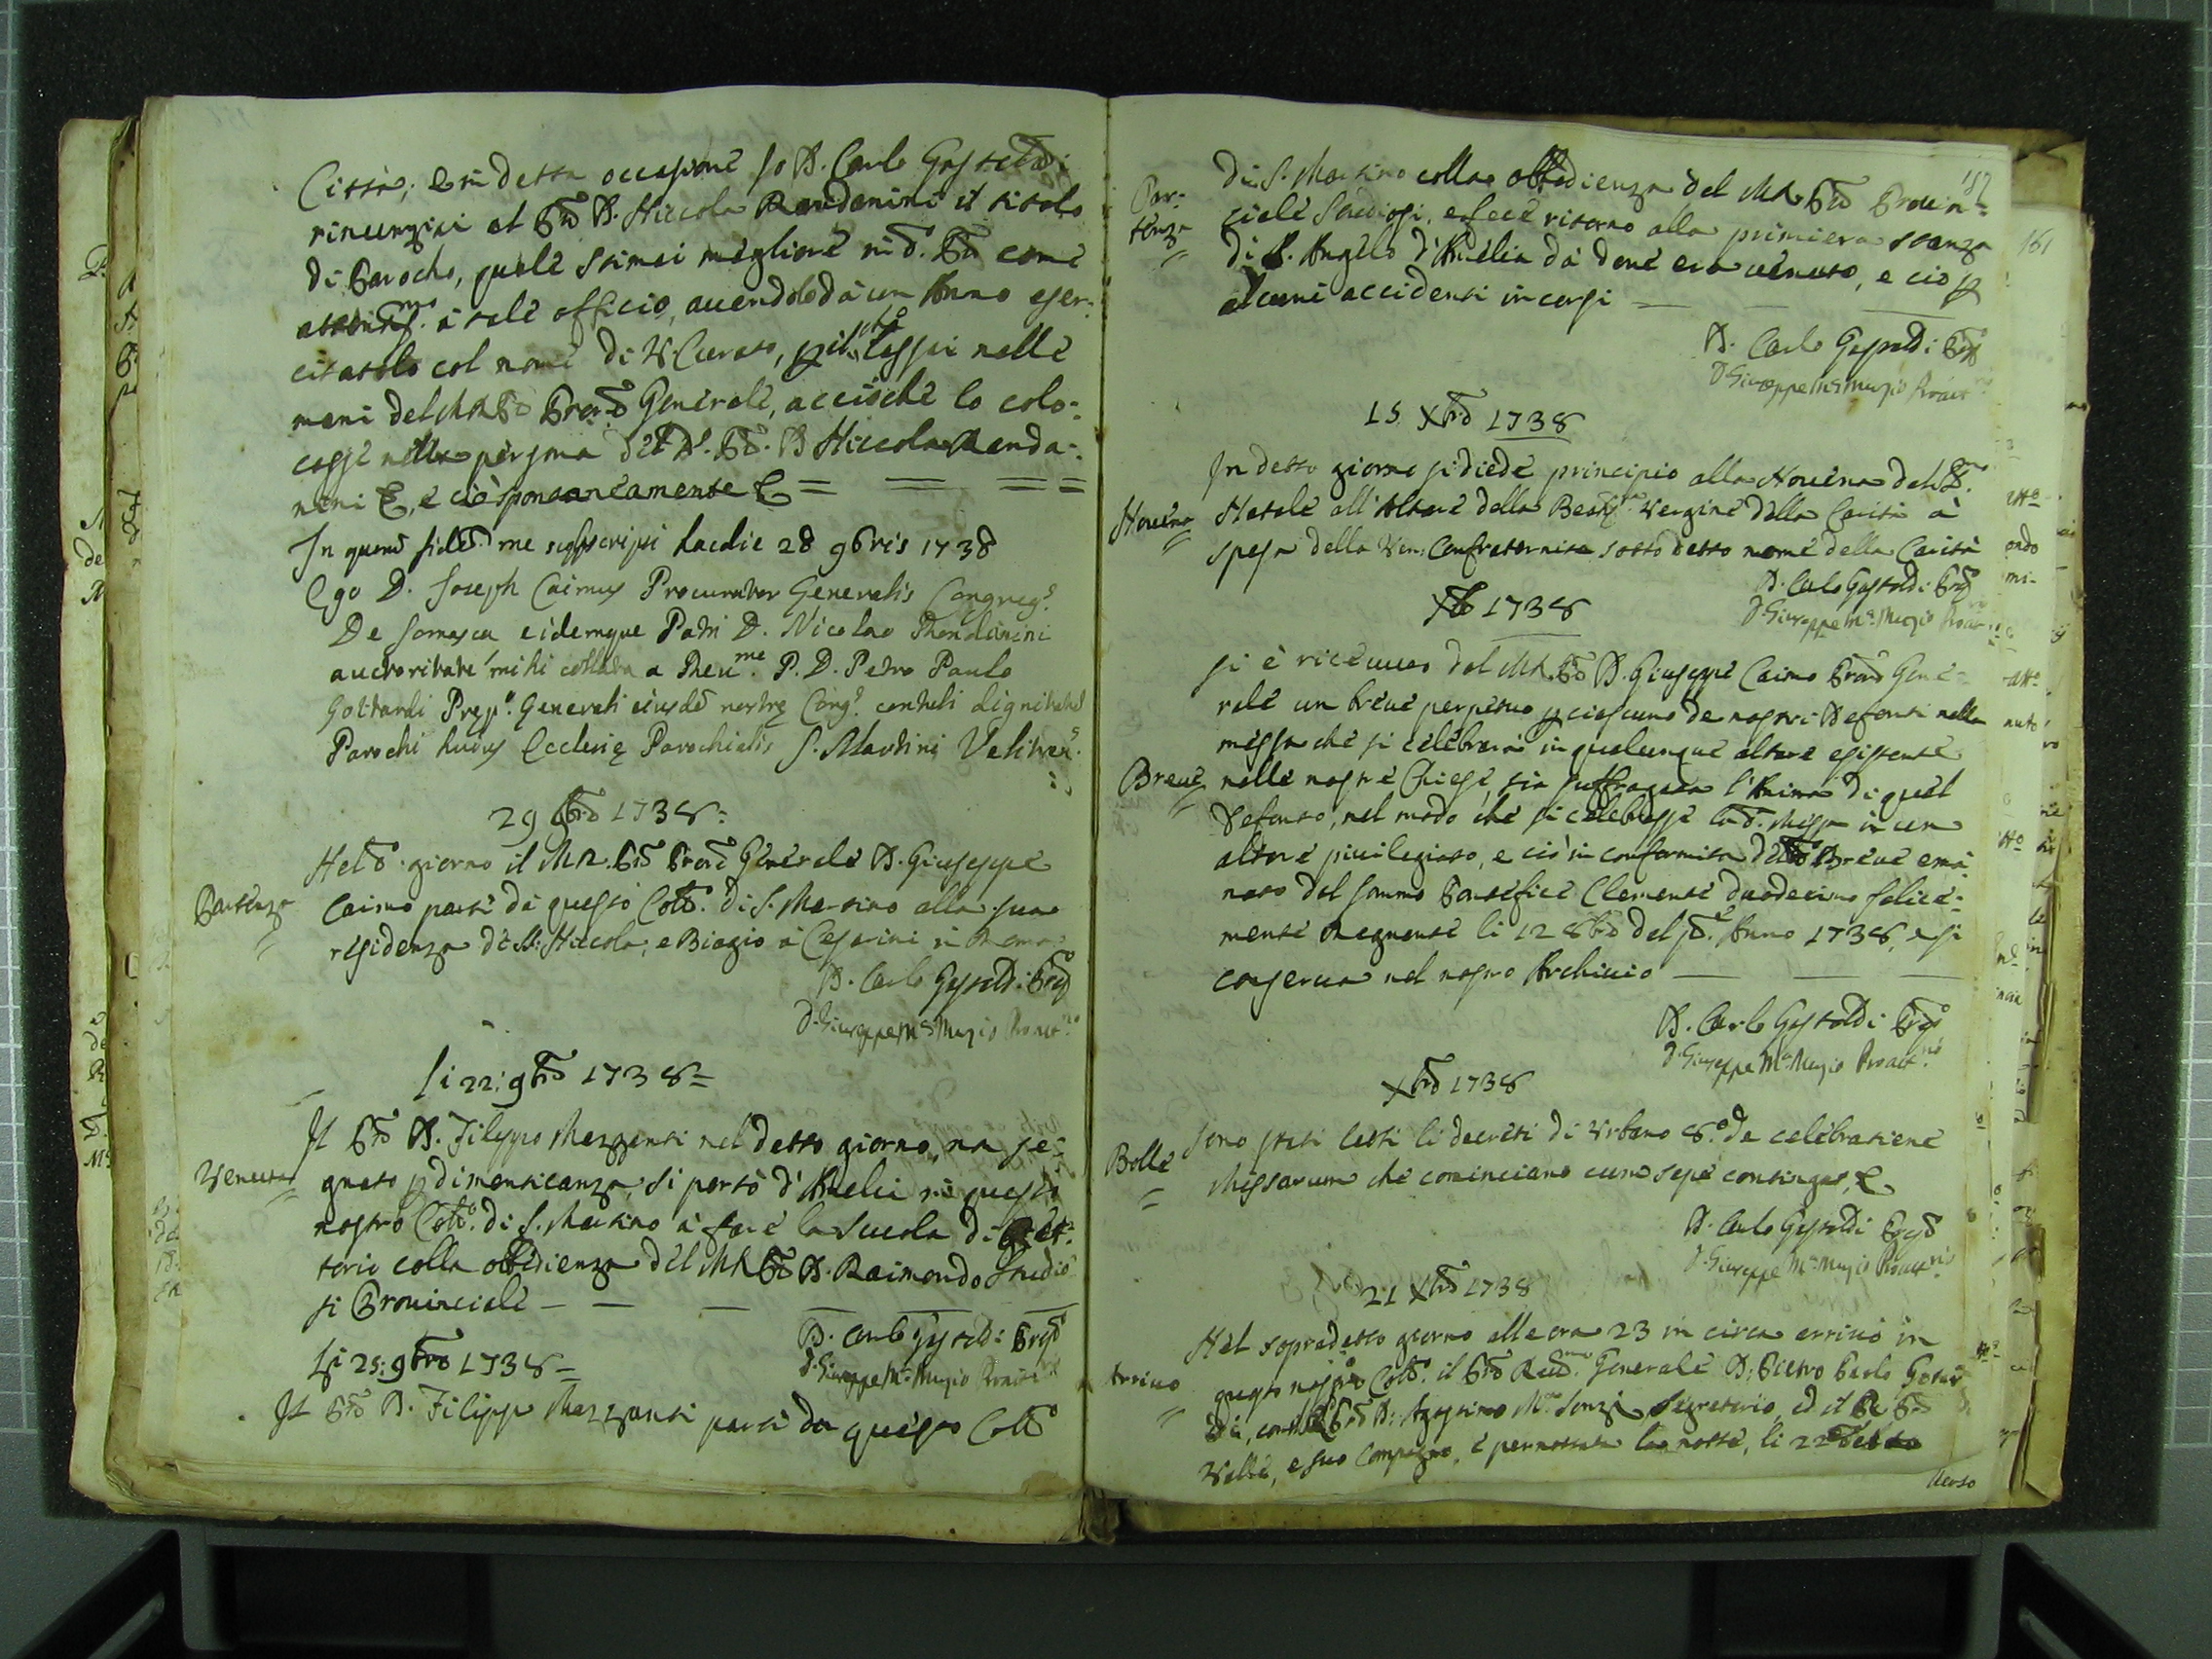 Città; e in detta occasione Io D. Carlo Gastoldi
rinunziai al Prē D. Niccola Rondanini il titolo
di Parocho, quale stimai megliore in d.º Prē come
a tale officio, avendolo da un Anno eser:
citatolo col nome di V. Curato, lassai nelle
mani del M.R. Prē Procrē Generale, acciochè lo colo:
casse nella persona del D.º Prē D. Niccola Randa:
nini &, e ciò sponaneamente & = = = =
In quorum fidē me suppscripsi hac die 28 9bris 1738
Ego D. Joseph Caimus Procurator Generalis Congreg.s
De Somasca eidemque Patri D. Nicolao Rondanini
auctoritate mihi collata a Reu.me P. D. Petro Paulo
Gottardi Prep.º Generali eiusdē nostrę Cong.s contuli dignitatē
Parochi huius Ecclesię Parochialis S. Martini Veliter.
29 9brē 1738 =
Partenza
Nel d.º giorno il M.R. Prē Procrē Generale D. Giuseppe
Caimo partì da questo Coll.º di S. Martino alla sua
residenza de SS. Niccola, e Biagio a Cesarini in Roma
D. Carlo Gastoldi Prep.º
D. Giuseppe M.a Muzio Proatt.rio
li 22: 9brē 1738 =
Venuta
Il Prē D. Filippo Mezzanti nel detto giorno, na se:
gnato p dimenticanza, si portò d'Amelia in questo
nostro Coll.º di S. Martino a fare la scuola di Ret:
torica colla obbedienza del M.R. Prē D. Raimondo Studio
si Provinciale — — —
D. Carlo Gastoldi Prep.º
D. Giuseppe M.a Muzio Proatt.rio
Li 25: 9bre 1738 =
Il Prē D. Filippo Mezzanti partì da questo Coll.º
157
Par:
tenza
di S. Martino colla obbedienza del M.R. Prē Provin:
ciale Studiosi, e fece ritorno alla primiera stanza
di S. Angelo d'Amelia da dove era venuto, e ciò p
alcuni accidenti incorsi —
D. Carlo Gastoldi Prep.
D. Giuseppe M.a Muzio Proatt.rio
15 Xbrē 1738
Novena
In detto giorno si diede principio alla Novena del S.
Natale all'Altare della Beatis.a Vergine della Carità a
spesa della Ven: Confraternita sotto detto nome della Carità
D. Carlo Gastoldi Prep.º
D. Giuseppe M.a Muzio Proatt.rio
Xb 1738
Breve
Si è ricevuto dal M.R. Prē D. Giuseppe Caimo Procrē Gene:
rale un breve perpetuo p ciascuno de nostri Defonti nella
messa che si celebrerà in qualunque altare esistente
nelle nostre Chiese, sia suffragata l'Anima di quel
Defonto, nel modo che si celebrasse la d.ª Messa in un
altare privilegiato, e ciò in conformità del d.º Breve ema
nato dal Sommo Pontefice Clemente duodecimo felice:
mente Regnante li 12 8brē del sd.º Anno 1738, e si
conserva nel nostro Archivio —
D. Carlo Gastoldi Prep.º
D. Giuseppe M.a Muzio Proatt.rio
Xbrē 1738
Bolle
Sono stati letti li decreti di Urbano 8.º de celebratione
Missarum che cominciano cum sepe contingat, &
D. Carlo Gastoldi Prep.º
D. Giuseppe M.a Muzio Proatt.rio
21 Xbrē 1738
Arrivo
Nel sopradetto giorno alle ora 23 in circa arrivò in
questo nostro Coll.º il Prē Reud.mo Generale D: Pietro Paolo Gotar
di, con il Prē D: Agostino M.a Sonzi Segretario, ed il Prē
Valle, e suo Compagno, e pernottata la notte, li 22 detto
verso
161